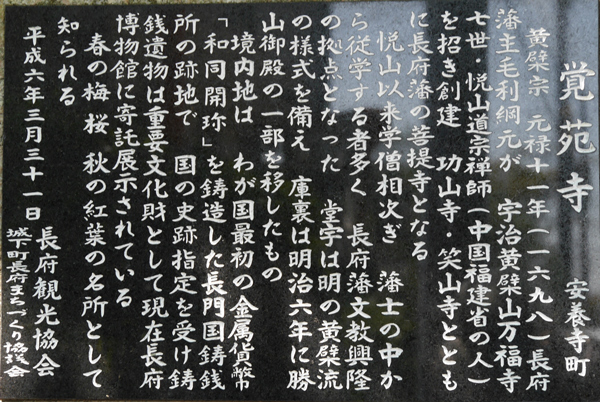 覚苑寺 安養寺町
黄檗宗 元禄十一年(一六九八)長府
藩主毛利綱元が 宇治黄檗山万福寺
七世・悦山道宗禅師(中国福建省の人)
を招き創建 功山寺・笑山寺ととも
に長府藩の菩提寺となる
悦山以来学僧相次ぎ 藩士の中か
ら従学する者多く 長府藩文教興隆
の拠点となった 堂宇は明の黄檗流
の様式を備え 庫裏は明治六年に勝
山御殿の一部を移したもの
境内地は わが国最初の金属貨幣
「和同開珎」を鋳造した長門国鋳銭
所の跡地で 国の史跡指定を受け鋳
銭遺物は重要文化財として現在長府
博物館に寄託展示されている
春の梅 桜 秋の紅葉の名所として
知られる
平成六年三月三十一日 長府観光協会
城下町長府まちづくり協議会